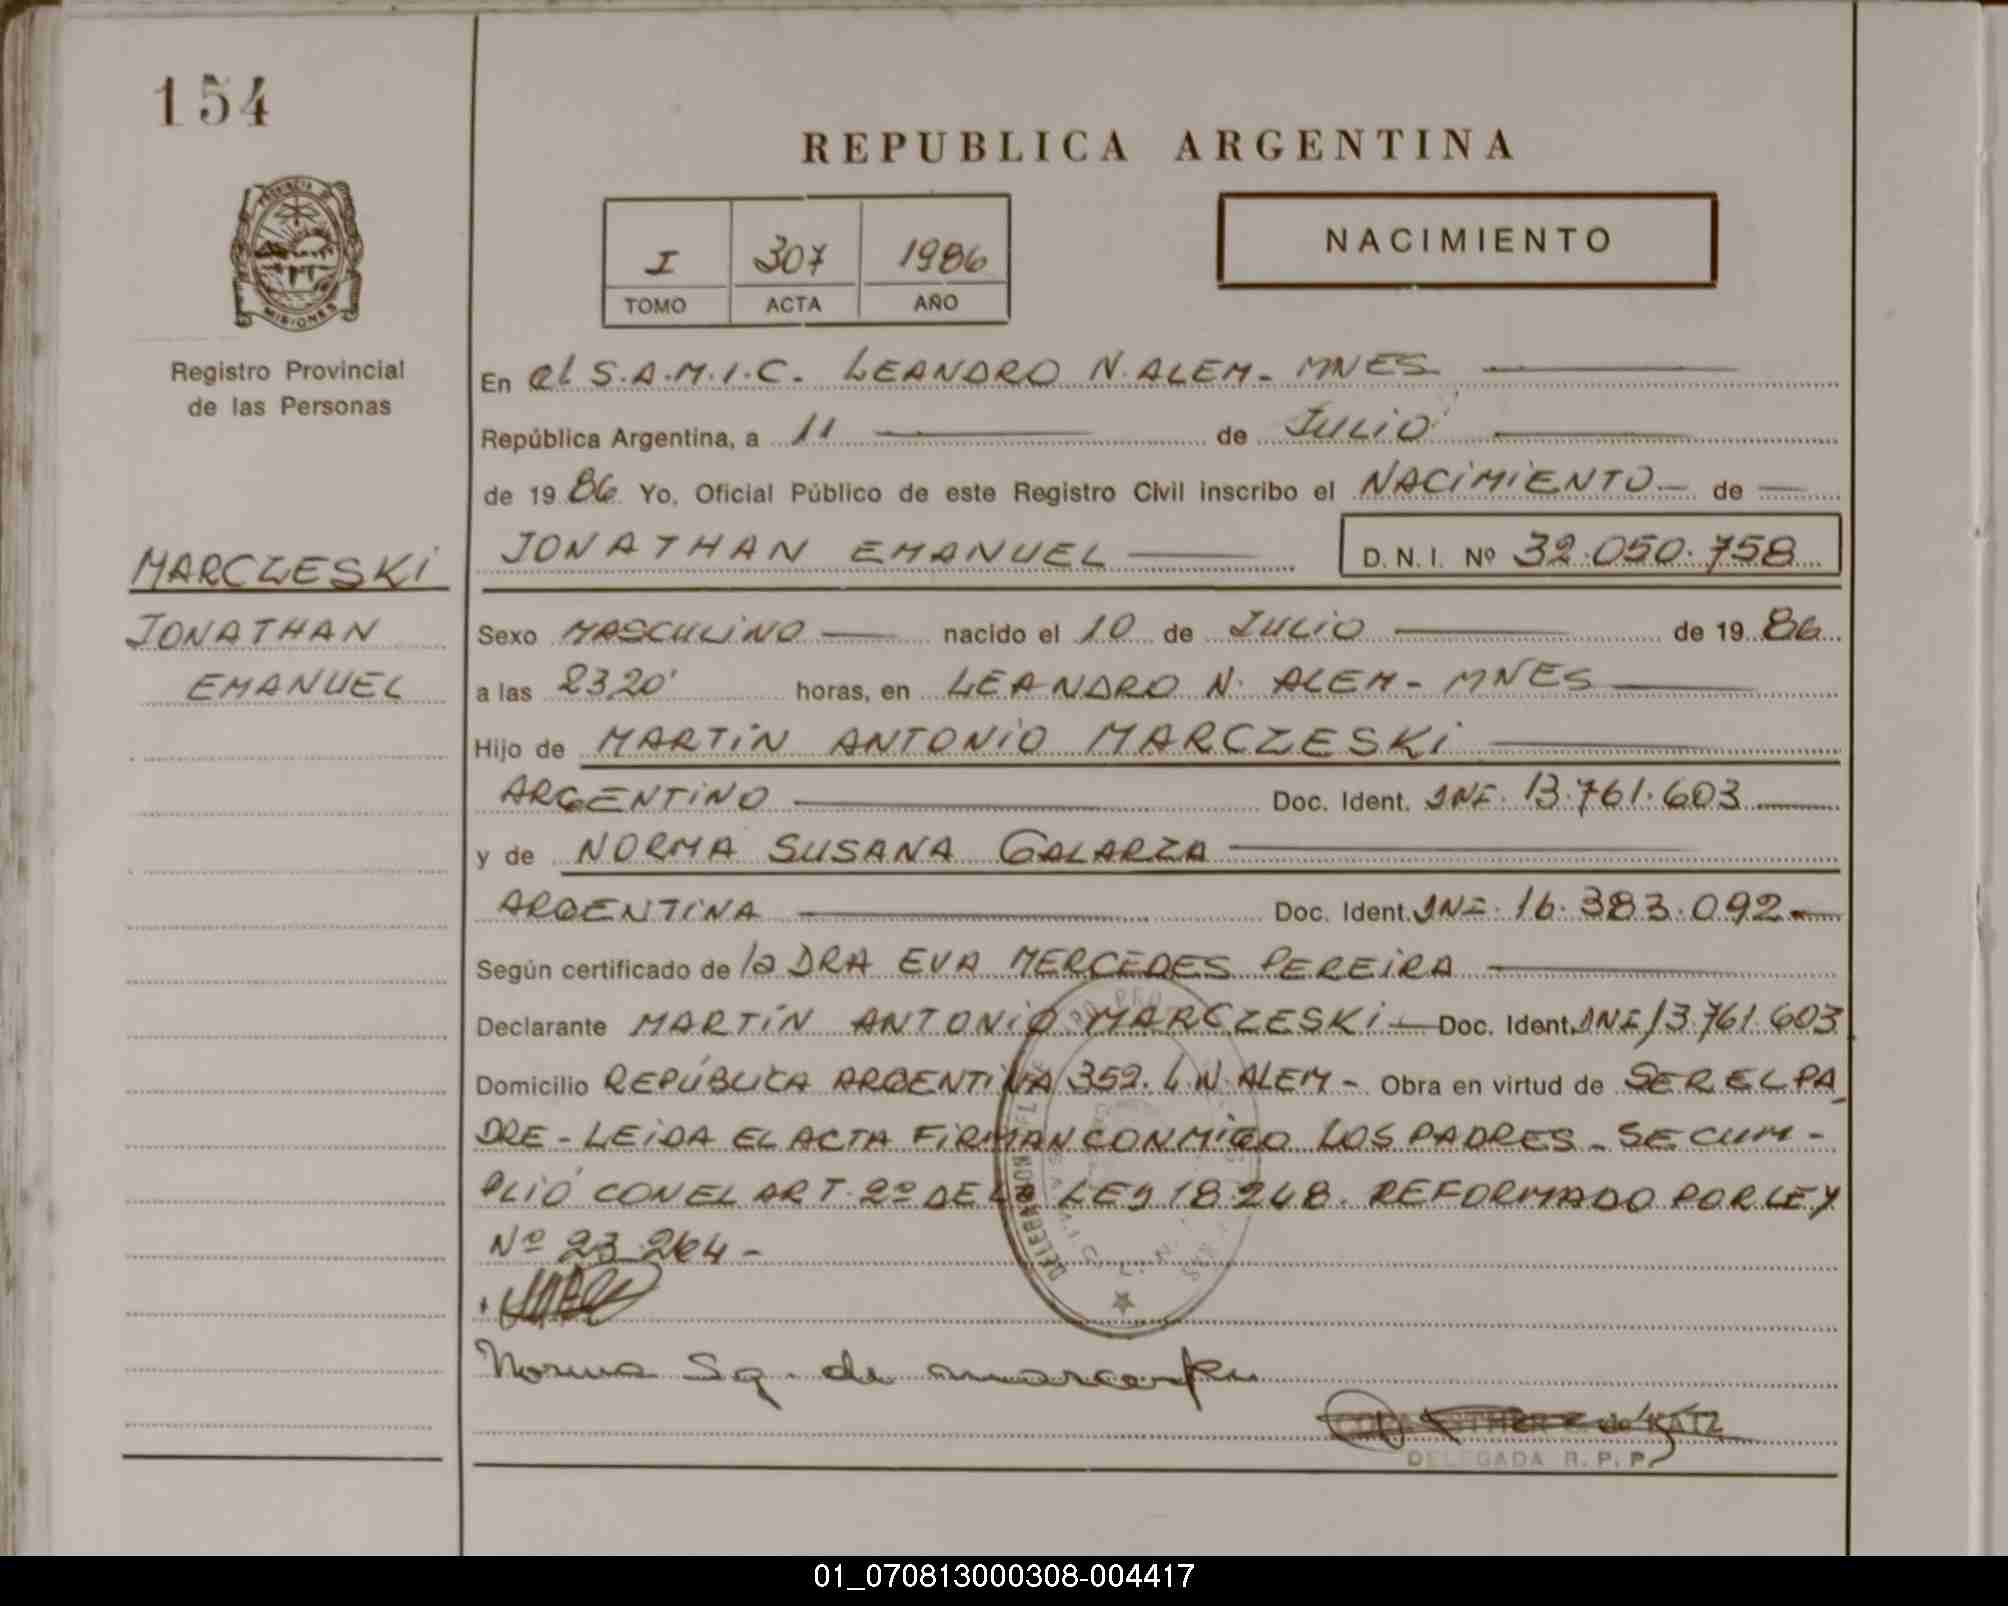 154
REPUBLICA ARGENTINA
PROVINCIA DE
MISIONES
Registro Provincial
de las Personas
I 307 1986
TOMO ACTA AÑO
NACIMIENTO
En el S.A.M.I.C. LEANDRO N. ALEM - MNES
República Argentina, a 11 de JULIO
de 1986 Yo, Oficial Público de este Registro Civil inscribo el NACIMIENTO de
JONATHAN EMANUEL D.N.I. Nº 32.050.758
MARCZESKI
JONATHAN
EMANUEL
Sexo MASCULINO nacido el 10 de JULIO de 1986
a las 2320' horas, en LEANDRO N. ALEM - MNES
Hijo de MARTÍN ANTONIO MARCZESKI
ARGENTINO Doc. Ident. DNI. 13.761.603
y de NORMA SUSANA GALARZA
ARGENTINA Doc. Ident. DNI. 16.383.092
Según certificado de la DRA EVA MERCEDES PEREIRA
Declarante MARTÍN ANTONIO MARCZESKI Doc. Ident. DNI 13.761.603
Domicilio REPÚBLICA ARGENTINA 352. L.N. ALEM - Obra en virtud de SER EL PA
DRE - LEIDA EL ACTA FIRMAN CONMIGO LOS PADRES - SE CUM -
PLIÓ CON EL ART. 2º DE LA LEY 18.248. REFORMADO POR LEY
Nº 23.264 -
Norma SG. de
de KATZ
DELEGADA R.P.P.
01_070813000308-004417